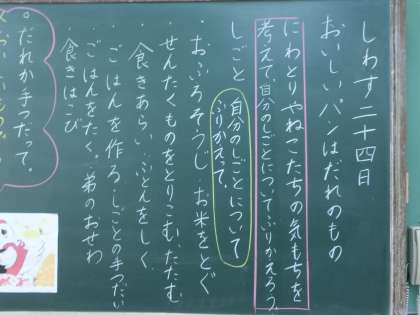 しわす二十四日
おいしいパンはだれのもの
にわとりやねこたちの気もちを
考えて、自分のしごとについてふりかえろう
しごと
自分のしごとについて
ふりかえて、
・おふろそうじ・お米をとぐ
・せんたくものをとりこむ、たたむ
・食きあらい・ふとんをしく
・ごはんを作る・しごとの手つだい
・ごはんをたく。・弟のおせわ
・食きはこび
。だれか手つだって。